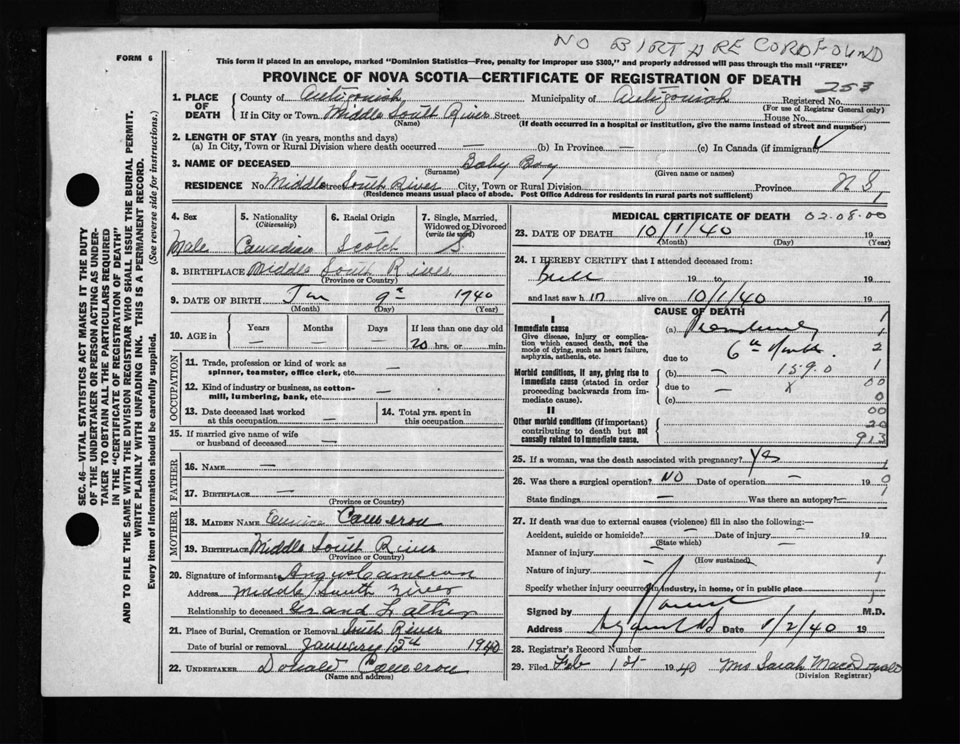 NO BIRTH RECORD FOUND
FORM 6
This form if placed in an envelope, marked "Dominion Statistics—Free, penalty for improper use $300," and properly addressed will pass through the mail "FREE"
PROVINCE OF NOVA SCOTIA—CERTIFICATE OF REGISTRATION OF DEATH
253
1. PLACE OF DEATH County of Antigonish Municipality of Antigonish Registered No.
(For use of Registrar General only)
If in City or Town Middle South River Street House No.
(Name) (If death occurred in a hospital or institution, give the name instead of street and number)
2. LENGTH OF STAY (in years, months and days)
(a) In City, Town or Rural Division where death occurred — (b) In Province — (c) In Canada (if immigrant)
3. NAME OF DECEASED Baby Boy
(Surname) (Given name or names)
RESIDENCE No. Middle Street South River City, Town or Rural Division Province N S
(Residence means usual place of abode. Post Office Address for residents in rural parts not sufficient)
4. Sex
Male
5. Nationality
(Citizenship)
Canadian
6. Racial Origin
Scotch
7. Single, Married, Widowed or Divorced
(write the word)
S
8. BIRTHPLACE Middle South River
(Province or Country)
9. DATE OF BIRTH Jan 9th 1940
(Month) (Day) (Year)
10. AGE in Years Months Days If less than one day old
— — — 20 hrs. or min.
OCCUPATION
11. Trade, profession or kind of work as spinner, teamster, office clerk, etc. —
12. Kind of industry or business, as cotton-mill, lumbering, bank, etc. —
13. Date deceased last worked at this occupation —
14. Total yrs. spent in this occupation
15. If married give name of wife or husband of deceased —
FATHER
16. NAME —
17. BIRTHPLACE —
(Province or Country)
MOTHER
18. MAIDEN NAME Cameron
19. BIRTHPLACE Middle South River
(Province or Country)
20. Signature of informant Angus Cameron
Address Middle South River
Relationship to deceased Grand Father
21. Place of Burial, Cremation or Removal South River
Date of burial or removal January 12th 1940
22. UNDERTAKER Donald Cameron
(Name and address)
MEDICAL CERTIFICATE OF DEATH 02.08.00
23. DATE OF DEATH 10/1/40 19
(Month) (Day) (Year)
24. I HEREBY CERTIFY that I attended deceased from:
19 to 19
and last saw h im alive on 10/1/40 19
CAUSE OF DEATH
I
Immediate cause
Give disease, injury or complication which caused death, not the mode of dying, such as heart failure, asphyxia, asthenia, etc.
(a) Prematurity
due to 6th Month
Morbid conditions, if any, giving rise to immediate cause (stated in order proceeding backwards from immediate cause).
(b) — 159.0
due to — X
(c)
II
Other morbid conditions (if important) contributing to death but not causally related to immediate cause.
1
1
2
1
00
0
00
20
913
25. If a woman, was the death associated with pregnancy? Yes
26. Was there a surgical operation? NO Date of operation — 19
State findings — Was there an autopsy? —
27. If death was due to external causes (violence) fill in also the following:—
Accident, suicide or homicide? — Date of injury — 19
(State which)
Manner of injury —
(How sustained)
Nature of injury —
Specify whether injury occurred in industry, in home, or in public place
Signed by M.D.
Address Date 1/2/40 19
28. Registrar's Record Number
29. Filed Feb 1st 1940 Mrs Sarah MacDonald
(Division Registrar)
SEC. 46—VITAL STATISTICS ACT MAKES IT THE DUTY
OF THE UNDERTAKER OR PERSON ACTING AS UNDER-
TAKER TO OBTAIN ALL THE PARTICULARS REQUIRED
IN THE "CERTIFICATE OF REGISTRATION OF DEATH"
AND TO FILE THE SAME WITH THE DIVISION REGISTRAR WHO SHALL ISSUE THE BURIAL PERMIT.
WRITE PLAINLY WITH UNFADING INK. THIS IS A PERMANENT RECORD.
Every item of information should be carefully supplied. (See reverse side for instructions.)